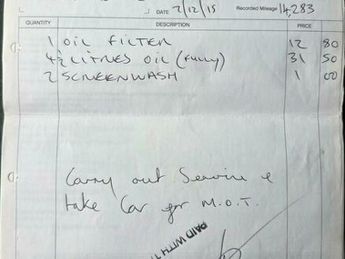 DATE 2/12/15 Recorded Mileage 14,283
QUANTITY DESCRIPTION PRICE
1 OIL FILTER 12 80
4½ LITRES OIL (Fully) 31 50
2 SCREENWASH 1 00
Carry out Service &
take Car for M.O.T.
PAID WITH